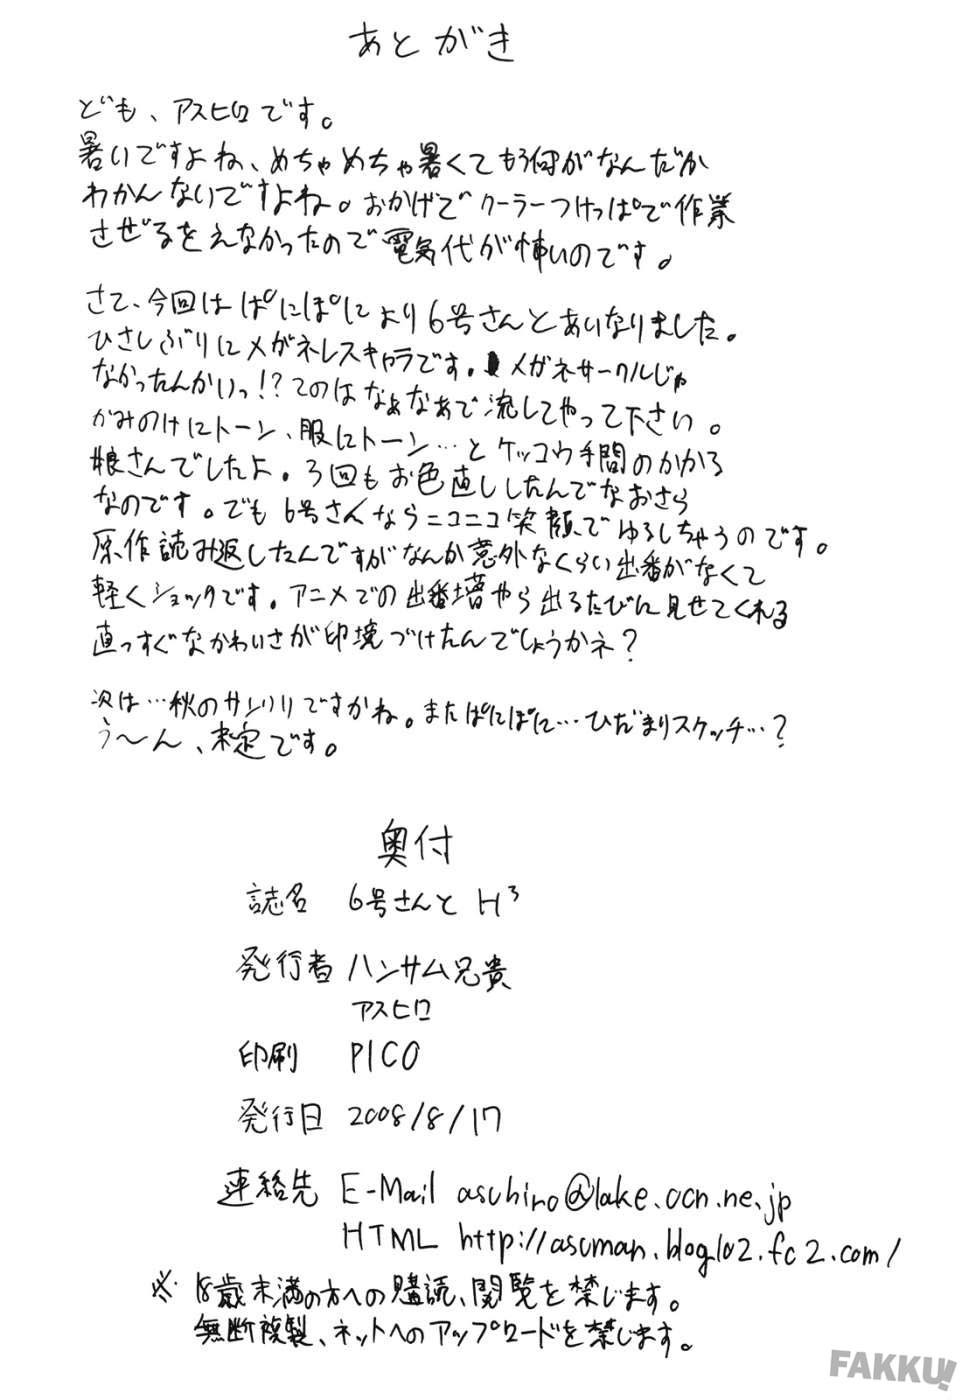 あとがき
ども、アスヒロです。
暑いですよね、めちゃめちゃ暑くてもう何がなんだか
わかんないですよね。おかげでクーラーつけっぱで作業
させざるをえなかったので電気代が怖いのです。
さて、今回はぱにぽにより6号さんとあいなりました。
ひさしぶりにメガネレスキャラです。メガネサークルじゃ
なかったんかいっ!?てのはなぁなぁで流してやって下さい。
かみのけにトーン、服にトーン…とケッコウ手間のかかる
娘さんでしたよ。3回もお色直ししたんでなおさら
なのです。でも6号さんならニコニコ笑顔でゆるしちゃうのです。
原作読み返したんですがなんか意外なくらい出番がなくて
軽くショックです。アニメでの出番増やら出るたびに見せてくれる
直っすぐなかわいさが印境づけたんでしょうかネ?
次は…秋のサンクリですかね。またぱにぽに…ひだまりスケッチ…?
う〜ん、未定です。
奥付
誌名 6号さんとH³
発行者 ハンサム兄貴
アスヒロ
印刷 PICO
発行日 2008/8/17
連絡先 E-Mail asuhiro@lake.ocn.ne.jp
HTML http://asuman.blog102.fc2.com/
※18歳未満の方への購読、閲覧を禁じます。
無断複製、ネットへのアップロードを禁じます。
FAKKU!